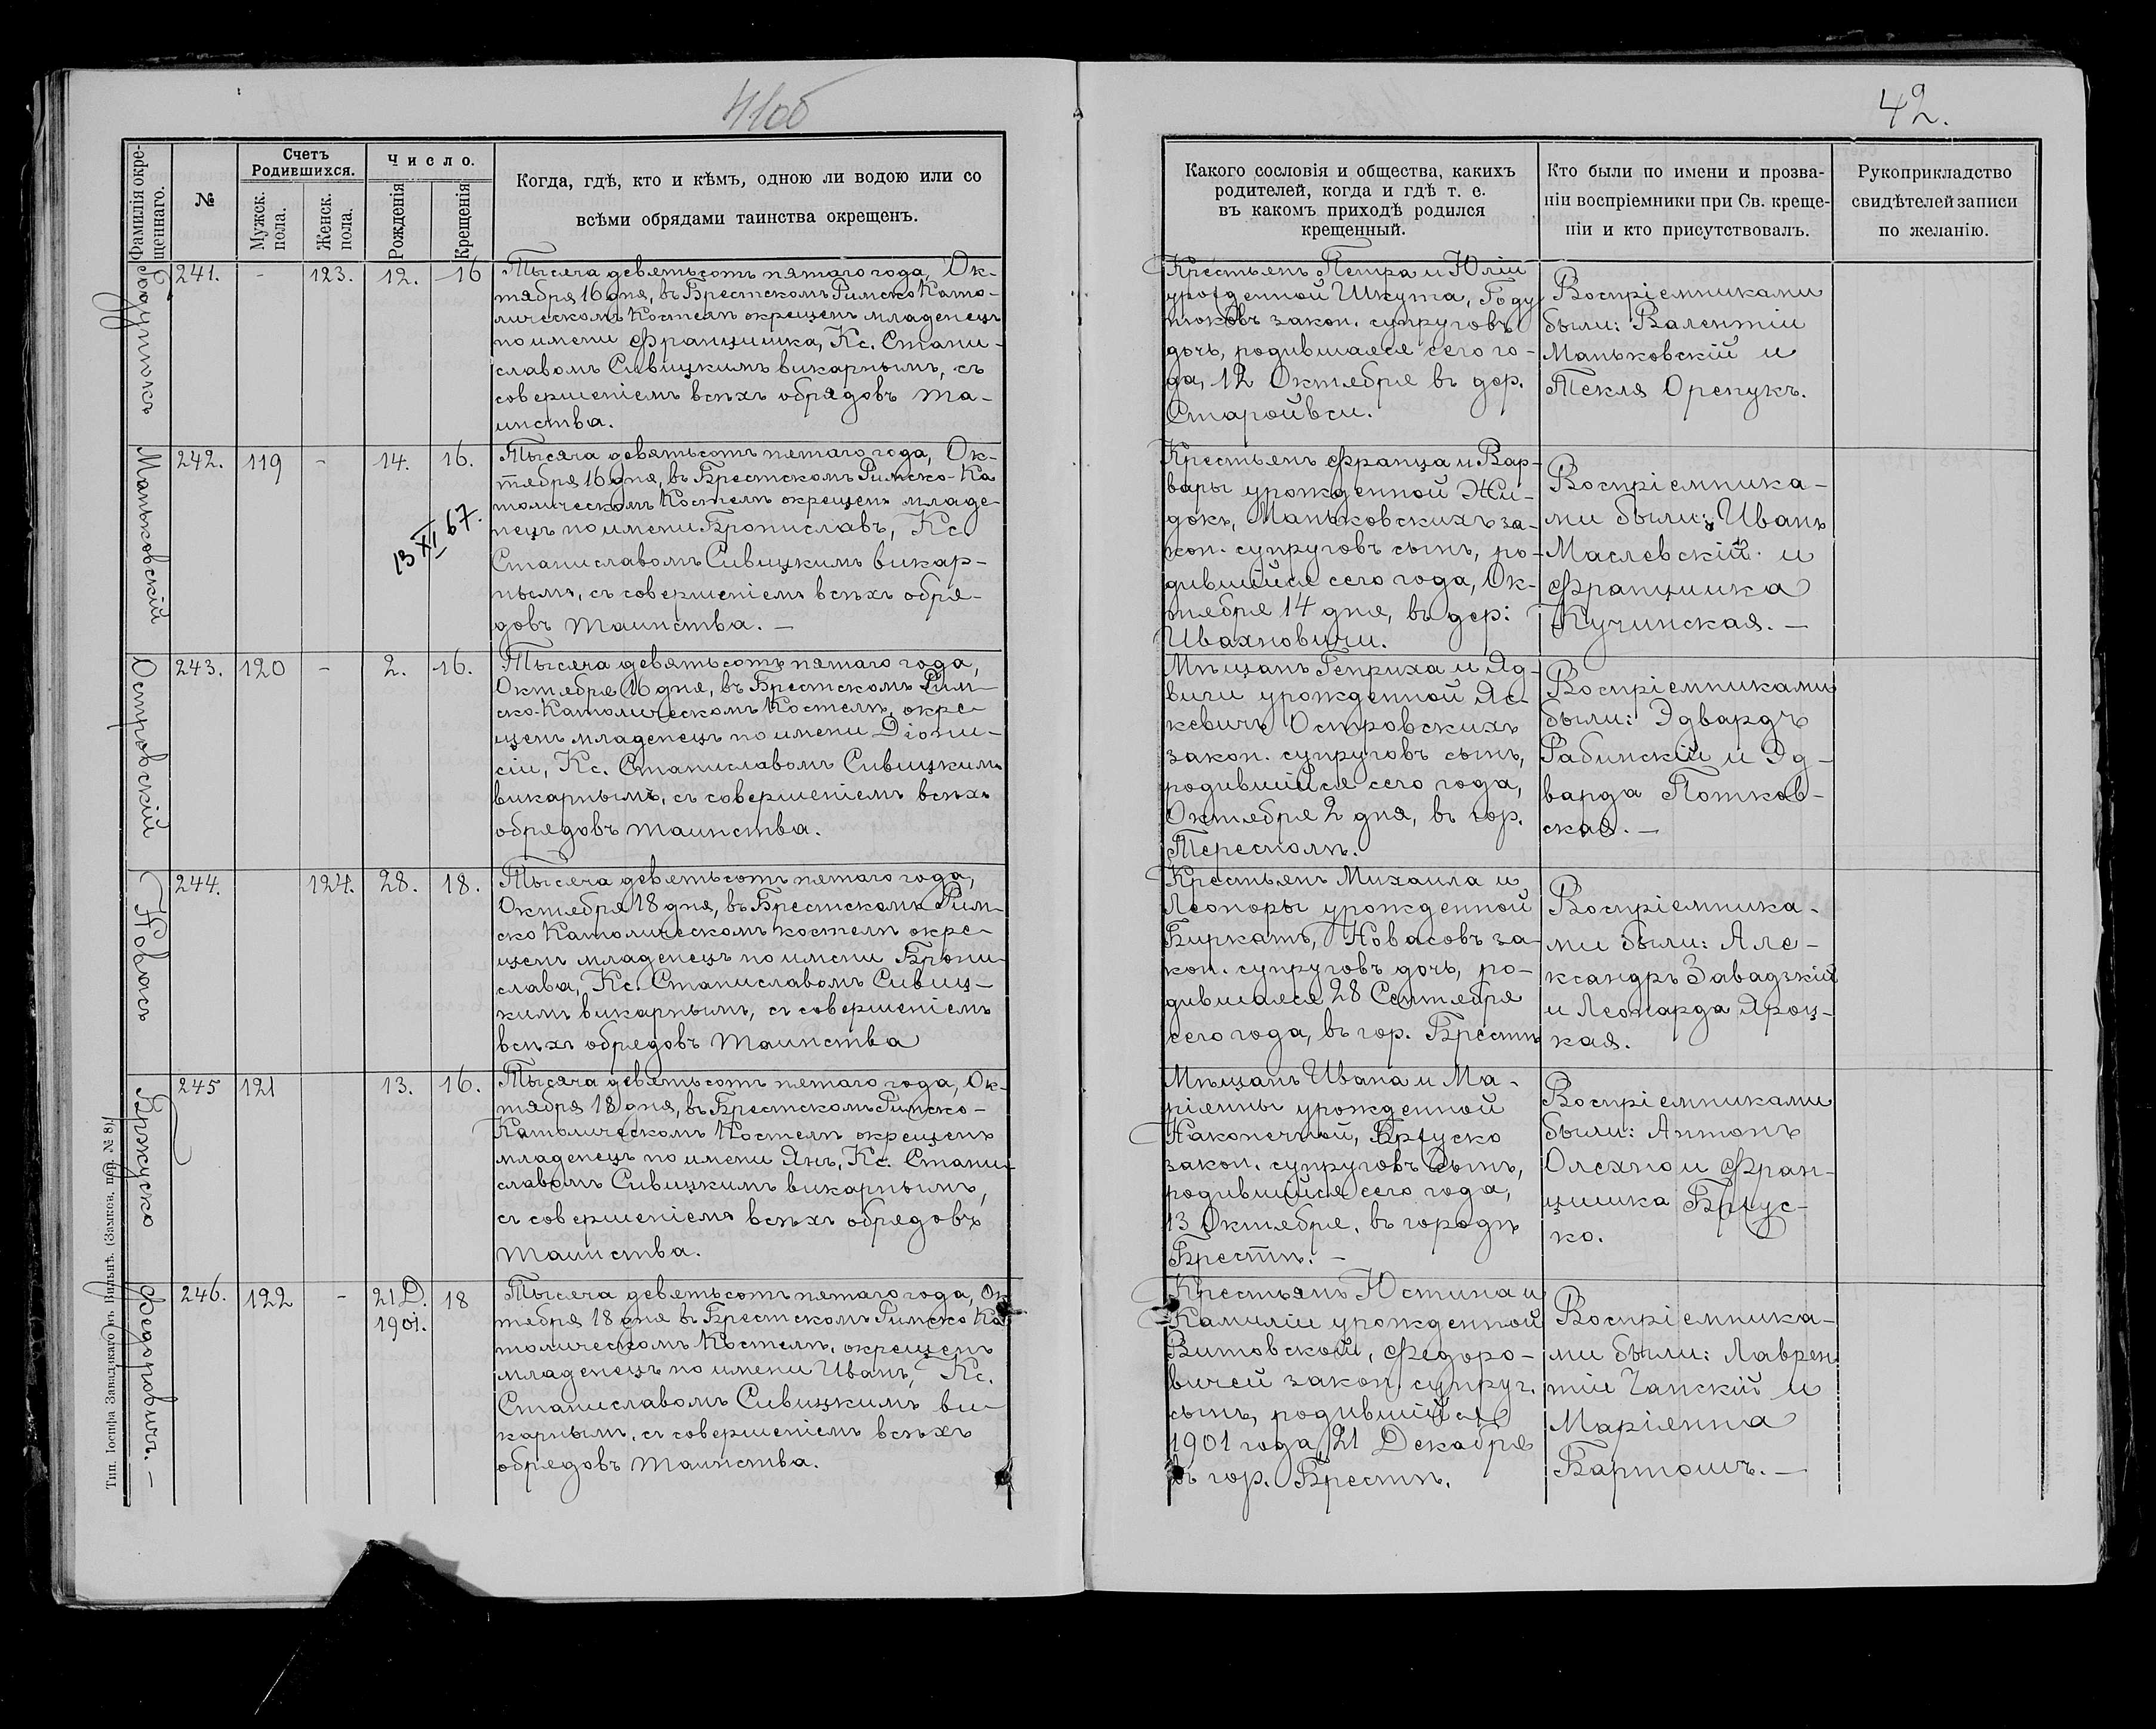 41об
42.
Фамилія окре-
щеннаго.
№
Счетъ
Родившихся.
Мужск.
пола.
Женск.
пола.
Число.
Рожденія
Крещенія
Когда, гдѣ, кто и кѣмъ, одною ли водою или со
всѣми обрядами таинства окрещенъ.
Какого сословія и общества, какихъ
родителей, когда и гдѣ т. е.
въ какомъ приходѣ родился
крещенный.
Кто были по имени и прозва-
ніи воспріемники при Св. креще-
ніи и кто присутствовалъ.
Рукоприкладство
свидѣтелей записи
по желанію.
241. - 123. 12. 16
Тысяча девятьсотъ пятаго года, Ок-
тября 16 дня, въ Брестскомъ Римско Като-
лическомъ Костелѣ окрещенъ младенецъ
по имени Францишка, Кс. Стани-
славомъ Сивицкимъ викарнымъ, съ
совершеніемъ всѣхъ обрядовъ та-
инства.
Крестьянъ Петра и Юліи
урожденной Шкута, Году
нюковъ закон. супруговъ
дочь, родившаяся сего го-
да, 12 Октября въ дер.
Старойвси.
Воспріемниками
были: Валентій
Маньковскій и
Текля Оренукъ.
Маньковскій
242. 119 - 14. 16.
13 XI 67.
Тысяча девятьсотъ пятаго года, Ок-
тября 16 дня, въ Брестскомъ Римско-Ка
толическомъ Костелѣ окрещенъ младе-
нецъ по имени Брониславъ, Кс.
Станиславомъ Сивицкимъ викар-
нымъ, съ совершеніемъ всѣхъ обря-
довъ таинства. —
Крестьянъ Франца и Вар-
вары урожденной Жи-
докъ, Маньковскихъ за-
кон. супруговъ сынъ, ро-
дившійся сего года, Ок-
тября 14 дня, въ дер:
Ивахновичи.
Воспріемника-
ми были: Иванъ
Маслевскій и
Францишка
Кучинская. —
Островскій
243. 120 - 2. 16.
Тысяча девятьсотъ пятаго года,
Октября 16 дня, въ Брестскомъ Рим-
ско-Католическомъ Костелѣ, окре-
щенъ младенецъ по имени Діони-
сій, Кс. Станиславомъ Сивицкимъ
викарнымъ, съ совершеніемъ всѣхъ
обрядовъ таинства.
Мѣщанъ Генриха и Яд-
виги урожденной Яс-
кевичъ Островскихъ
закон. супруговъ сынъ,
родившійся сего года,
Октября 2 дня, въ гор.
Тересполѣ.
Воспріемниками
были: Эдвардъ
Рабинскій и Эд-
варда Потков-
ская. —
Новасъ
244. 124. 28. 18.
Тысяча девятьсотъ пятаго года,
Октября 18 дня, въ Брестскомъ Рим-
ско Католическомъ костелѣ окре-
щенъ младенецъ по имени Брони-
слава, Кс. Станиславомъ Сивиц-
кимъ викарнымъ, съ совершеніемъ
всѣхъ обрядовъ таинства
Крестьянъ Михаила и
Леоноры урожденной
Биркатъ, Новасовъ за-
кон. супруговъ дочь, ро-
дившаяся 28 Сентября
сего года, въ гор. Брестѣ
Воспріемника-
ми были: Але-
ксандръ Завадзкій
и Леонарда Яроц-
кая.
Бржуско
245 121 13. 16.
Тысяча девятьсотъ пятаго года, Ок-
тября 18 дня, въ Брестскомъ Римско-
Католическомъ Костелѣ окрещенъ
младенецъ по имени Янъ, Кс. Стани-
славомъ Сивицкимъ викарнымъ,
съ совершеніемъ всѣхъ обрядовъ
таинства.
Мѣщанъ Ивана и Ма-
ріянны урожденной
Наконечной, Бржуско
закон. супруговъ сынъ,
родившійся сего года,
13 Октября, въ городѣ
Брестѣ. —
Воспріемниками
были: Антонъ
Олехно и Фран-
цишка Бржус-
ко.
Федоровичъ. —
246. 122 - 21 Д. 1901. 18
Тысяча девятьсотъ пятаго года, Ок
тября 18 дня въ Брестскомъ Римско Ка
толическомъ Костелѣ, окрещенъ
младенецъ по имени Иванъ, Кс.
Станиславомъ Сивицкимъ ви-
карнымъ, съ совершеніемъ всѣхъ
обрядовъ таинства.
Крестьянъ Юстина и
Камиліи урожденной
Витовской, Федоро-
вичей закон. супруг.
сынъ, родившійся
1901 года, 21 Декабря
въ гор. Брестѣ.
Воспріемника-
ми были: Лаврен
тій Чапскій и
Маріянна
Бартошъ. —
Тип. Іосифа Завадзкаго въ Вильнѣ. (Замков. пер. № 8)